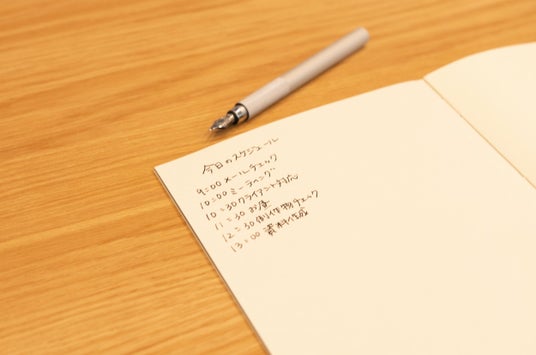 今日のスケジュール
9:00 メールチェック
10:00 ミーティング
10:30 クライアント対応
11:30 お昼
12:30 制作物チェック
13:00 資料作成